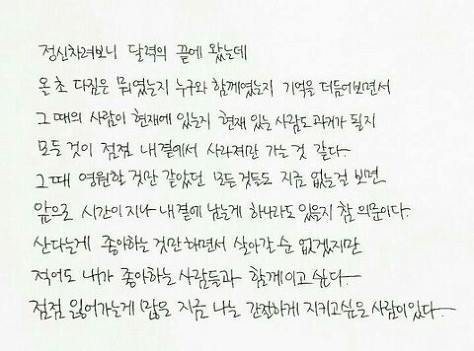 정신차려보니 달력의 끝에 왔는데
올 초 다짐은 뭐였는지 누구와 함께였는지 기억을 더듬어보면서
그 때의 사람이 현재에 있는지 현재 있는 사람도 과거가 될지
모든 것이 점점 내 곁에서 사라져만 가는 것 같다.
그 때 영원할 것만 같았던 모든 것들도 지금 없는걸 보면
앞으로 시간이 지나 내 곁에 남는게 하나라도 있을지 참 의문이다.
산다는게 좋아하는 것만 하면서 살아갈 순 없겠지만
적어도 내가 좋아하는 사람들과 함께이고 싶다.
점점 잃어가는게 많은 지금 나는 간절하게 지키고싶은 사람이 있다.